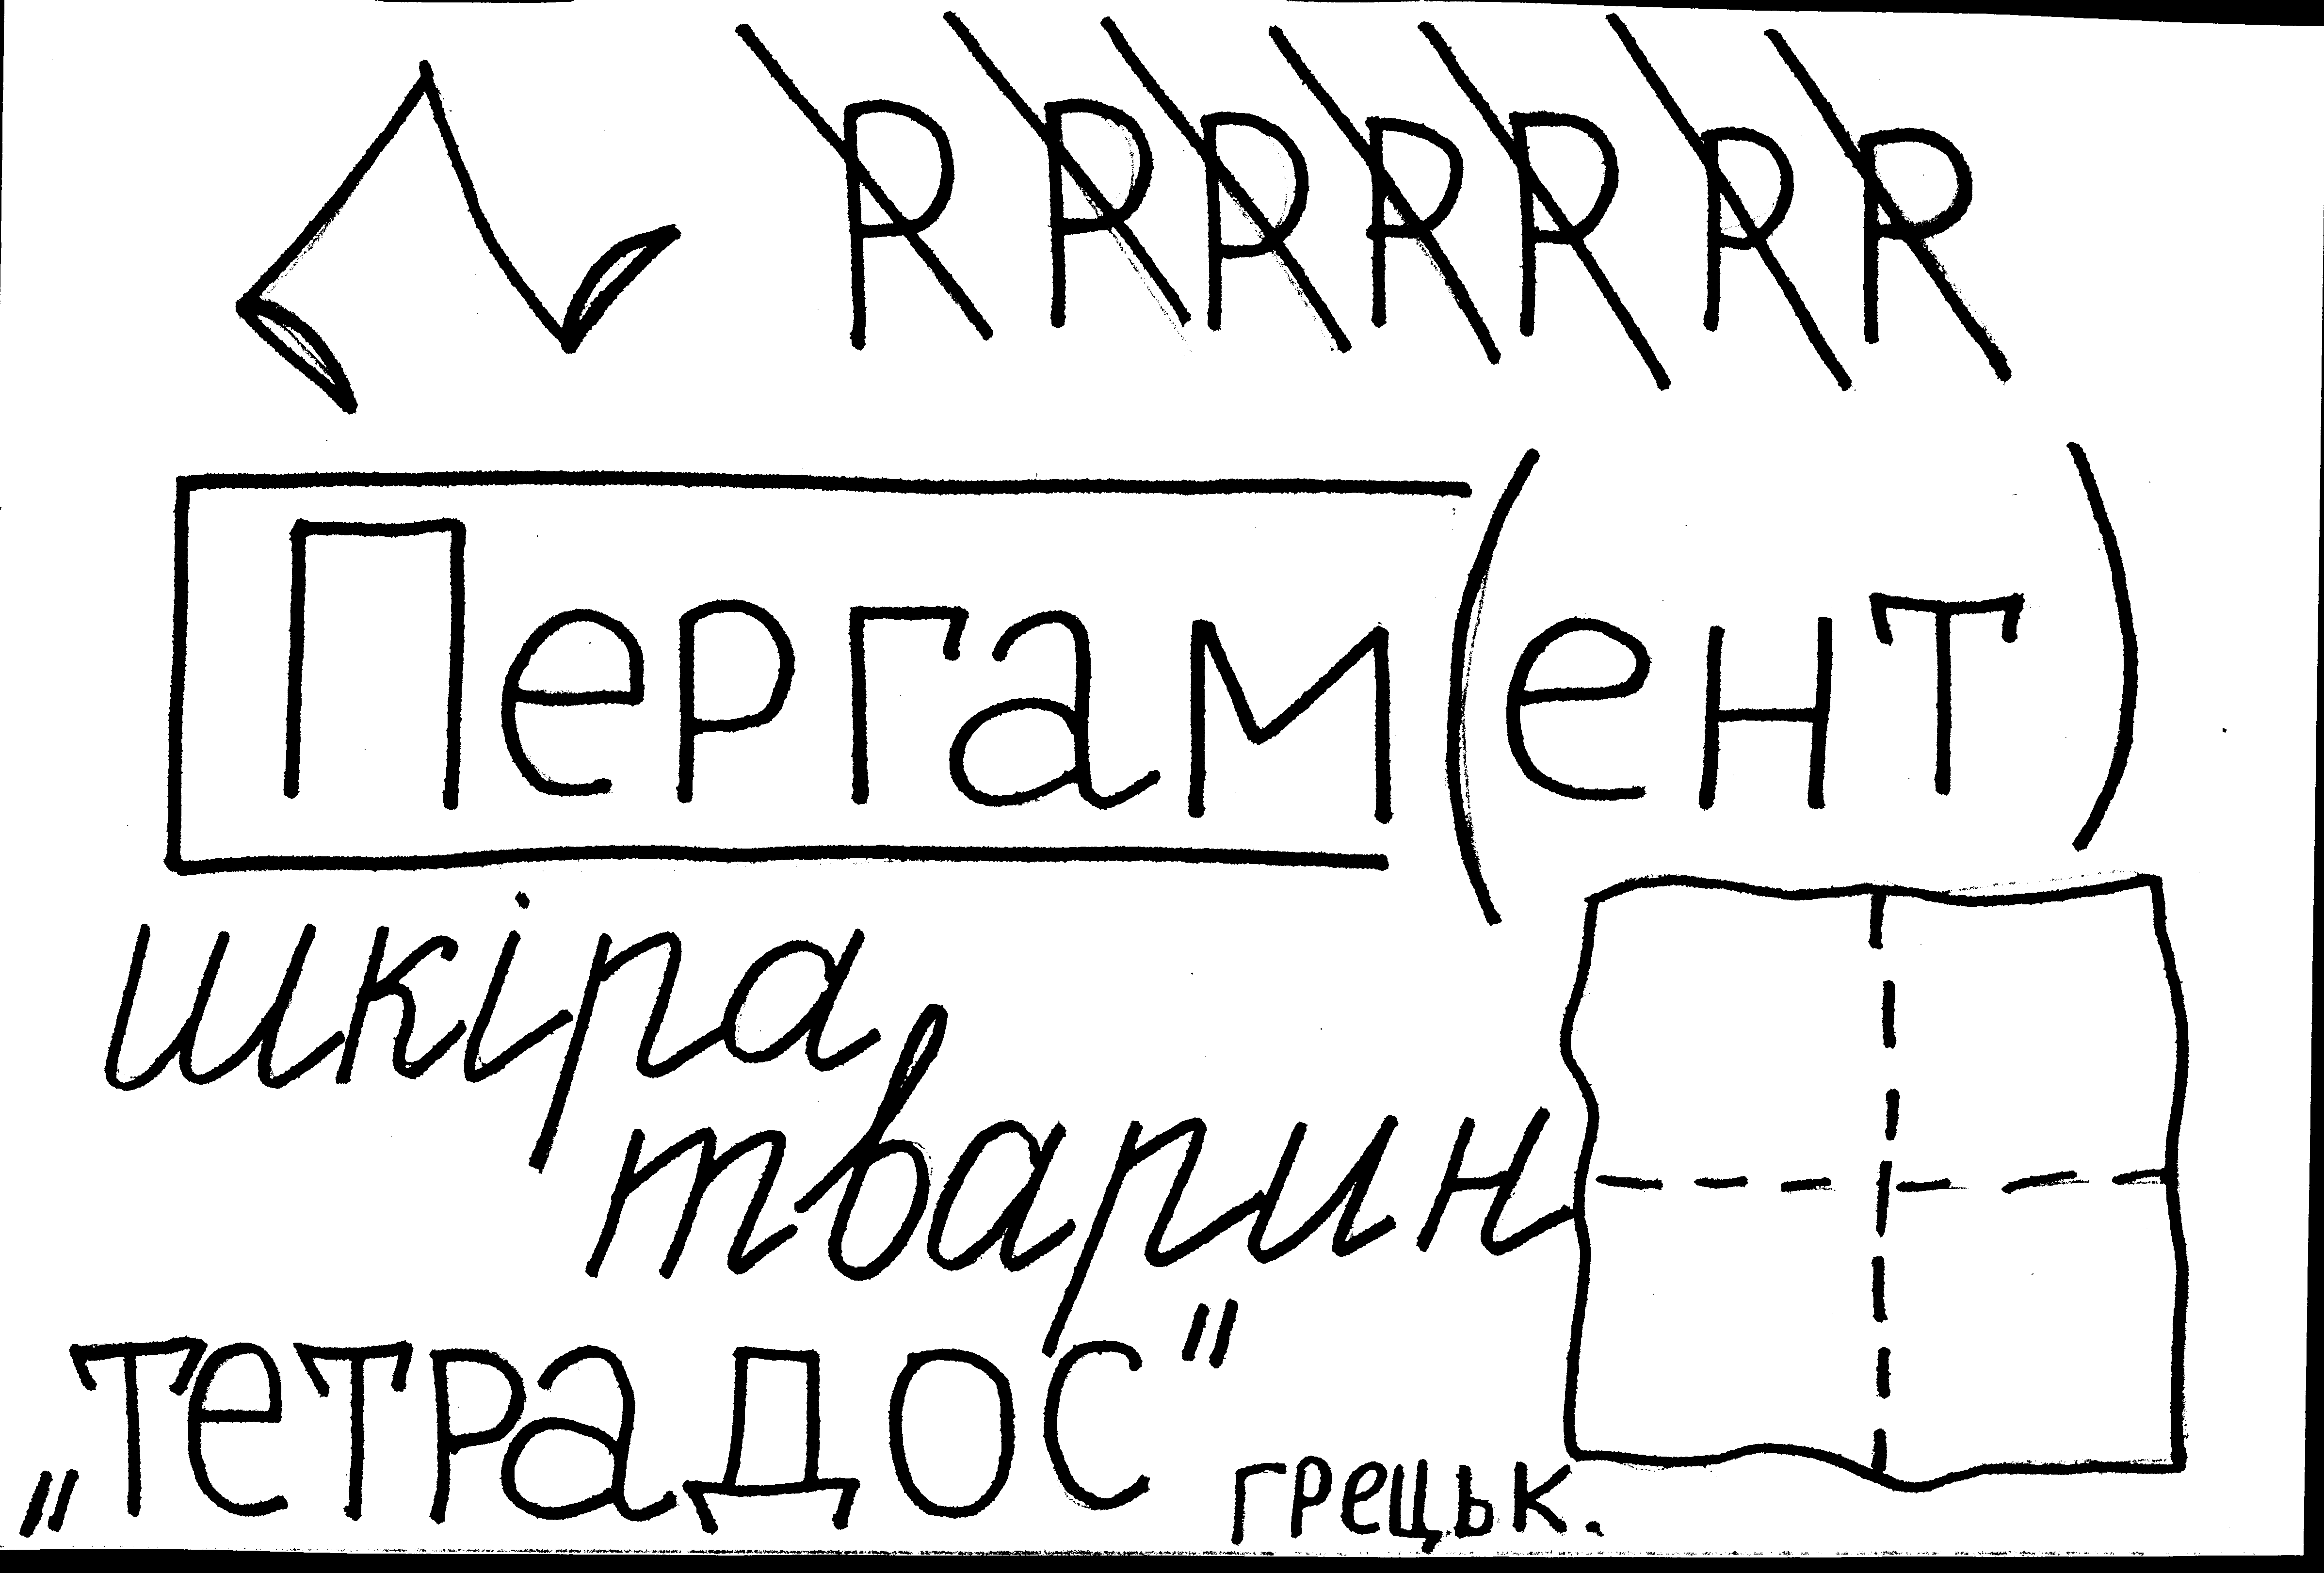 R R R R R R R
Пергам(ент)
шкіра
тварин
„тетрадос"
грецьк.